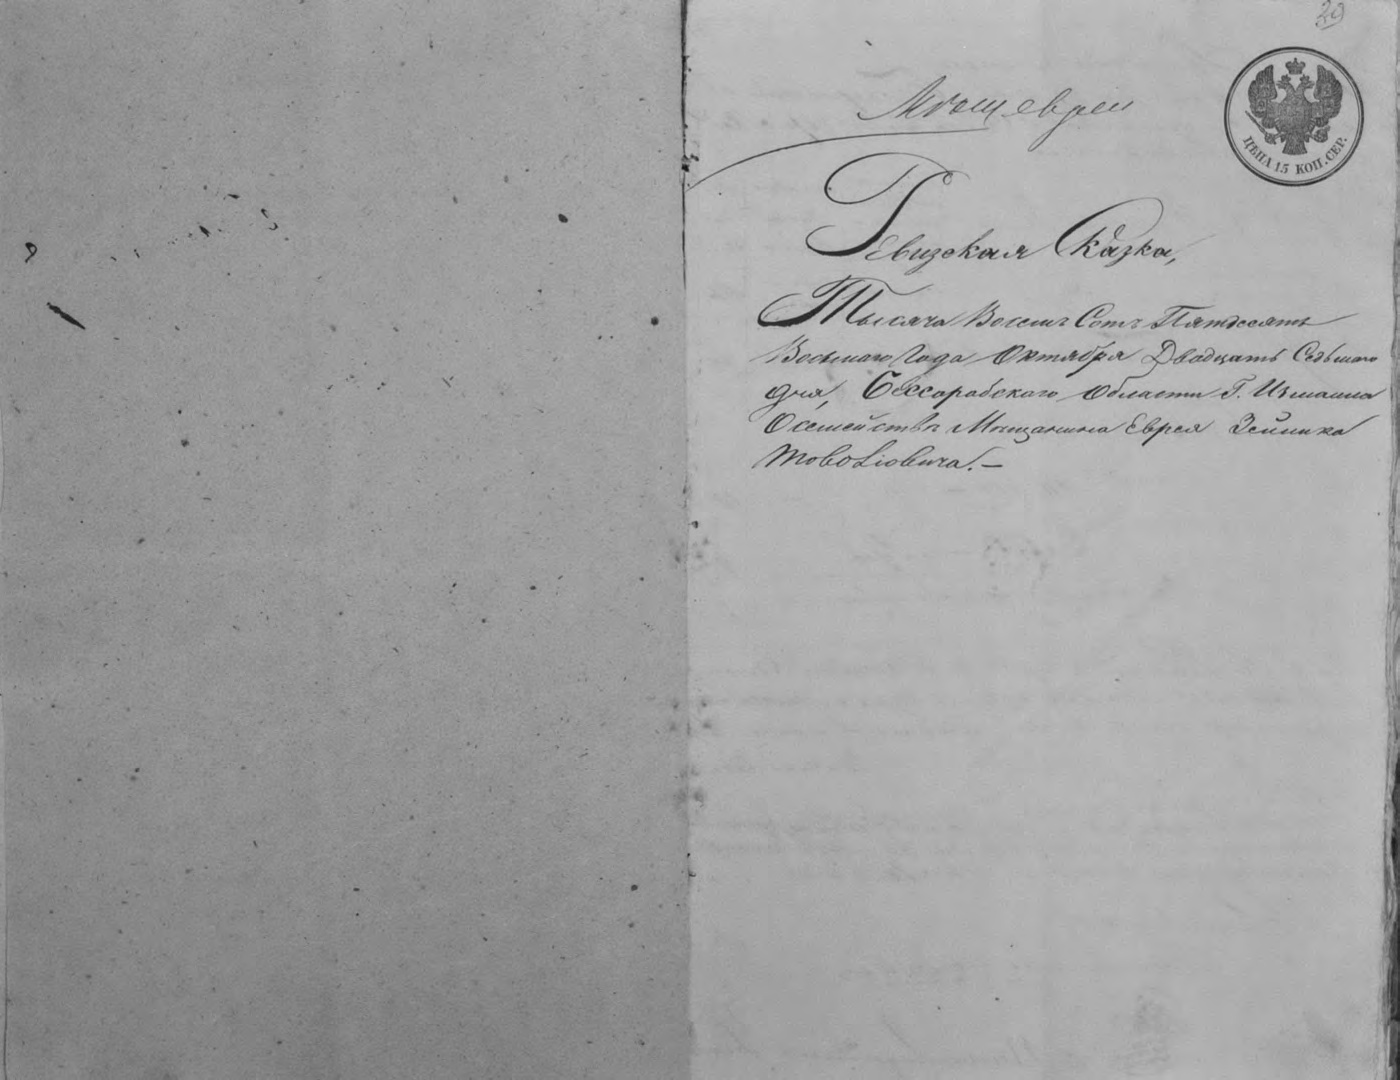 29
Мѣщ евреи
ЦѢНА 15 КОП. СЕР.
Ревизская Сказка,
Тысяча Восемь Сотъ Пятдесятъ
Восьмаго Года Октября Двадцать Седьмаго
дня, Бессарабского Области Г. Измаила
О семействѣ Мещанина Еврея